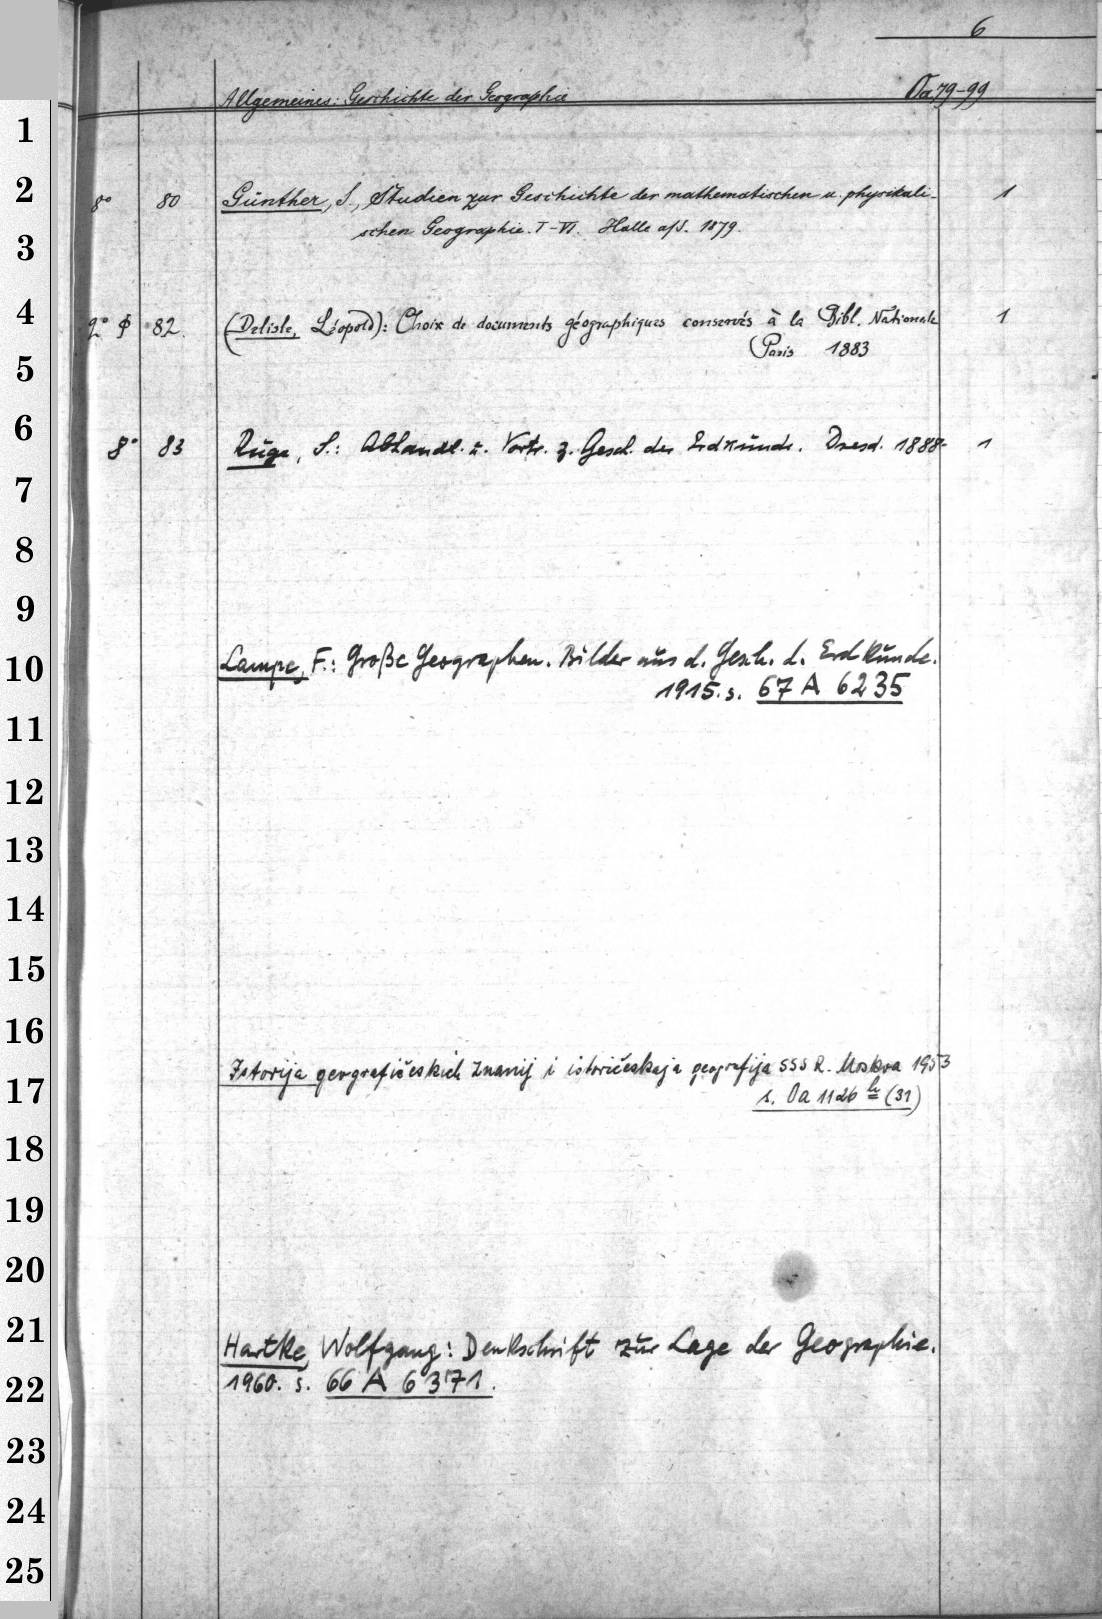 6
Allgemeines: Geschichte der Geographie Oa 79-99
1
2
8° 80 Günther, S., Studien zur Geschichte der mathematischen u. physikali- 1
schen Geographie. I-VI. Halle a/S. 1879.
3
4
2° ϕ 82. (Delisle, Léopold): Choix de documents géographiques conservés à la Bibl. Nationale 1
Paris 1883
5
6
8° 83 Ruge, S.: Abhandl. u. Vortr. z. Gesch. der Erdkunde. Dresd. 1888- 1
7
8
9
10
Lampe, F.: Große Geographen. Bilder aus d. Gesch. d. Erdkunde.
1915. s. 67 A 6235
11
12
13
14
15
16
Istorija geografičeskich Znanij i istoričeskaja geografija SSSR. Moskva 1953
17
s. Oa 1126 h (31)
18
19
20
21
Hartke, Wolfgang: Denkschrift zur Lage der Geographie.
22
1960. s. 66 A 6371.
23
24
25